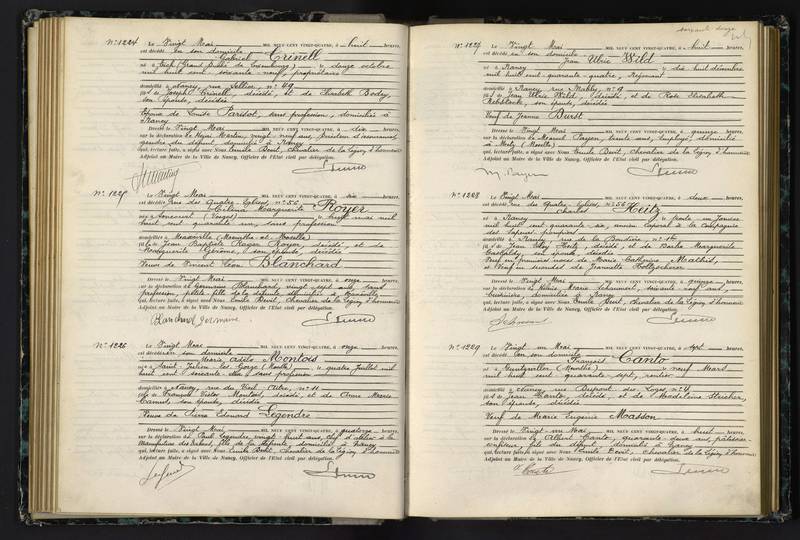 N° 1224 Le Vingt Mai MIL NEUF CENT VINGT-QUATRE, à huit heures,
est décédé en son domicile Gabriel Crinell
né à (Grand duché de Luxembourg) le douze octobre
mil huit cent soixante neuf, propriétaire
domicilié à Nancy, rue n° 49
fils de Joseph Crinell, décédé, et de Elisabeth Boday,
son épouse, décédée
Époux de Parisot, sans profession, domiciliée à
Nancy
Dressé le Vingt Mai MIL NEUF CENT VINGT-QUATRE, à dix heures,
sur la déclaration de vingt neuf ans,
gendre du défunt domicilié à Nancy
qui, lecture faite, a signé avec Nous Emile Benit, Chevalier de la Légion d'honneur
Adjoint au Maire de la Ville de Nancy, Officier de l'Etat civil par délégation.
N° 1225 Le Vingt Mai MIL NEUF CENT VINGT-QUATRE, à six heures,
est décédée rue des Quatre Eglises n° 56
Marguerite Royer
née à (Vosges) le mai mil
huit cent quarante un, sans profession
domiciliée à Maxéville (Meurthe et Moselle)
fille de Jean Baptiste Royer, décédé, et de
Marguerite son épouse, décédée
Veuve de Vincent Léon Blanchard
Dressé le Vingt Mai MIL NEUF CENT VINGT-QUATRE, à onze heures,
sur la déclaration de Germaine Blanchard, vingt sept ans, sans
profession, petite fille de la défunte, domiciliée à Maxéville
qui, lecture faite, a signé avec Nous Emile Benit, Chevalier de la Légion d'honneur
Adjoint au Maire de la Ville de Nancy, Officier de l'Etat civil par délégation.
Blanchard Germaine
N° 1226 Le Vingt Mai MIL NEUF CENT VINGT-QUATRE, à onze heures,
est décédée en son domicile
Marie Adèle Montois
née à Saint Julien les Gorze (Moselle) le quatre Juillet mil
huit cent soixante sans profession
domiciliée à Nancy, rue du Vieil Aître, n° 11
fille de François Victor Montois, décédé, et de Anne Marie
son épouse, décédée
Veuve de Edmond Legendre
Dressé le Vingt Mai MIL NEUF CENT VINGT-QUATRE, à quatorze heures,
sur la déclaration de Paul Legendre, vingt huit ans, chef d'atelier à la
Manufacture des tabacs, fils de la défunte, domicilié à Nancy
qui, lecture faite, a signé avec Nous Emile Benit, Chevalier de la Légion d'honneur
Adjoint au Maire de la Ville de Nancy, Officier de l'Etat civil par délégation.
Legendre
N° 1227 Le Vingt Mai MIL NEUF CENT VINGT-QUATRE, à huit heures,
est décédé en son domicile
Jean Ulric Wild
né à Nancy le dix huit décembre
mil huit cent quarante quatre,
domicilié à Nancy, rue Mably n° 9
fils de Jean Ulric Wild, décédé, et de Rose Elisabeth
son épouse, décédée
Veuf de Jeanne Burst
Dressé le Vingt Mai MIL NEUF CENT VINGT-QUATRE, à quinze heures,
sur la déclaration de trente ans, employé, domicilié
à Metz (Moselle)
qui, lecture faite, a signé avec Nous Emile Benit, Chevalier de la Légion d'honneur
Adjoint au Maire de la Ville de Nancy, Officier de l'Etat civil par délégation.
N° 1228 Le Vingt Mai MIL NEUF CENT VINGT-QUATRE, à deux heures,
est décédé rue des Quatre Eglises, n° 56
Charles Heitz
né à Nancy le trente un Janvier
mil huit cent quarante six, ancien caporal à la Compagnie
des sapeurs pompiers
domicilié à Nancy, rue de la
fils de Jean Heitz, décédé, et de Barbe Marguerite
son épouse, décédée
Veuf en premières noces de Marie Catherine Mathis,
et Veuf en secondes de Jeannette Holtzscherer
Dressé le Vingt Mai MIL NEUF CENT VINGT-QUATRE, à quinze heures,
sur la déclaration de Marie soixante neuf ans,
domiciliée à Nancy
qui, lecture faite, a signé avec Nous Emile Benit, Chevalier de la Légion d'honneur
Adjoint au Maire de la Ville de Nancy, Officier de l'Etat civil par délégation.
N° 1229 Le Vingt un Mai MIL NEUF CENT VINGT-QUATRE, à sept heures,
est décédé en son domicile
François Canto
né à (Meurthe) le neuf Mars
mil huit cent quarante sept, rentier
domicilié à Nancy, rue Dupont des Loges, n° 4
fils de Jean Canto, décédé, et de Madeleine
son épouse, décédée
Veuf de Marie Eugénie Masson
Dressé le Vingt un Mai MIL NEUF CENT VINGT-QUATRE, à huit heures,
sur la déclaration de Albert Canto, quarante deux ans, pâtissier
confiseur, fils du défunt, domicilié à Nancy
qui, lecture faite, a signé avec Nous Emile Benit, Chevalier de la Légion d'honneur
Adjoint au Maire de la Ville de Nancy, Officier de l'Etat civil par délégation.